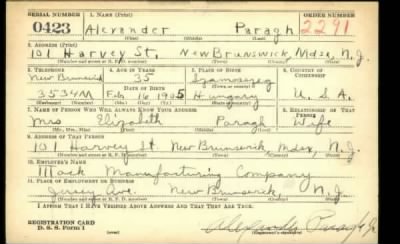 SERIAL NUMBER 1. NAME (Print) ORDER NUMBER
0423 Alexander Paragh 2291
(First) (Middle) (Last)
2. ADDRESS (Print)
101 Harvey St, New Brunswick, Mdsx, N.J.
(Number and street or R. F. D. number) (Town) (County) (State)
3. TELEPHONE 4. AGE IN YEARS 5. PLACE OF BIRTH 6. COUNTRY OF CITIZENSHIP
New Brunswick 35
DATE OF BIRTH (Town or county)
3534M Feb 16 1905 Hungary U.S.A.
(Exchange) (Number) (Mo.) (Day) (Yr.) (State or country)
7. NAME OF PERSON WHO WILL ALWAYS KNOW YOUR ADDRESS 8. RELATIONSHIP OF THAT PERSON
Mrs Elizabeth Paragh Wife
(Mr., Mrs., Miss) (First) (Middle) (Last)
9. ADDRESS OF THAT PERSON
101 Harvey St. New Brunswick, Mdsx, N.J.
(Number and street or R. F. D. number) (Town) (County) (State)
10. EMPLOYER'S NAME
Mack Manufacturing Company
11. PLACE OF EMPLOYMENT OR BUSINESS
Jersey Ave. New Brunswick, N.J.
(Number and street or R. F. D. number) (Town) (County) (State)
I AFFIRM THAT I HAVE VERIFIED ABOVE ANSWERS AND THAT THEY ARE TRUE.
REGISTRATION CARD
D. S. S. Form 1 (over) (Registrant's signature)